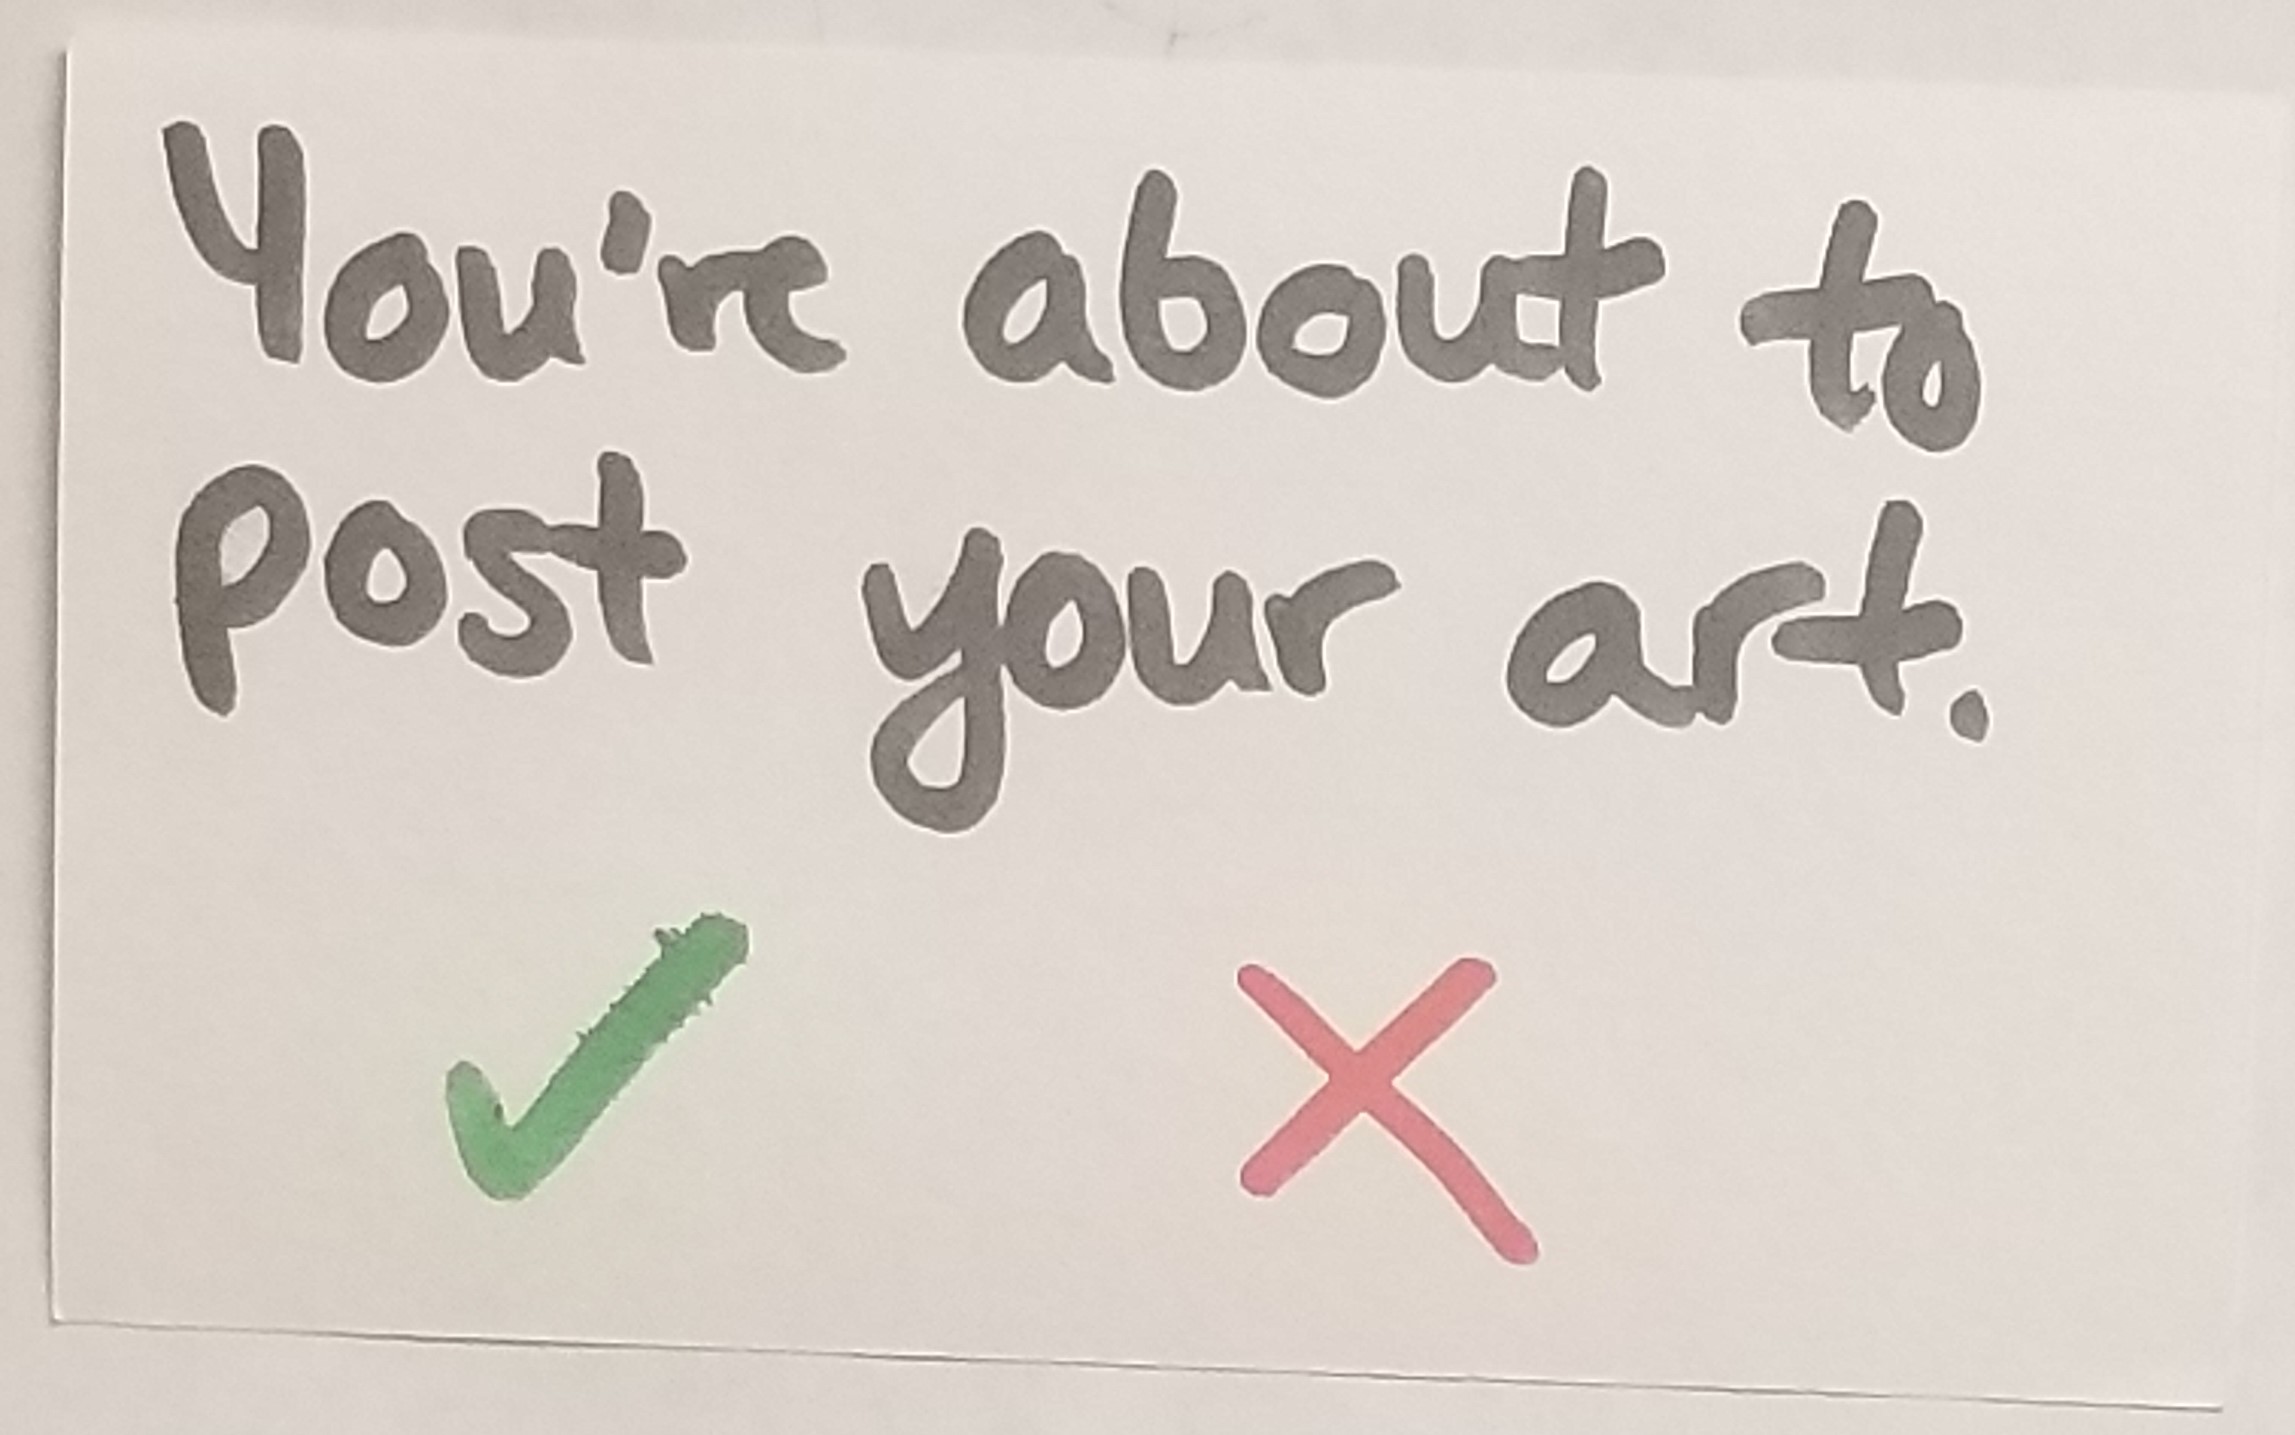 You're about to
post your art.
✓ ✗